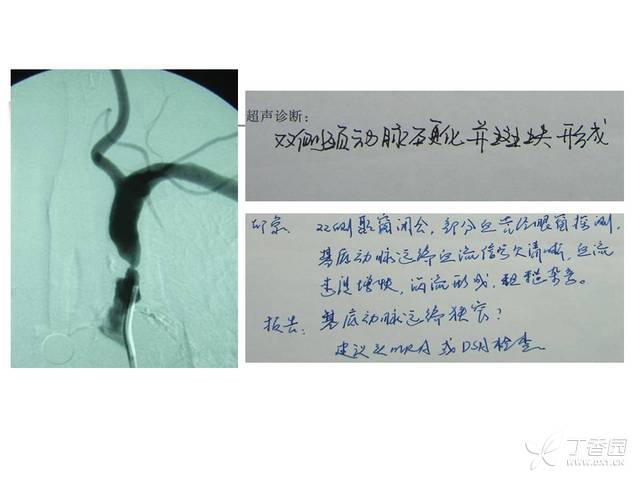 超声诊断:
双侧颈动脉硬化并斑块形成
印象: 双侧颞窗闭合,部分血流经眼窗探测,
基底动脉远端血流信号欠清晰,血流
速度增快,涡流形成,粗糙杂音。
报告: 基底动脉远端狭窄?
建议之MRA或DSA检查
丁香园
WWW.DXY.CN